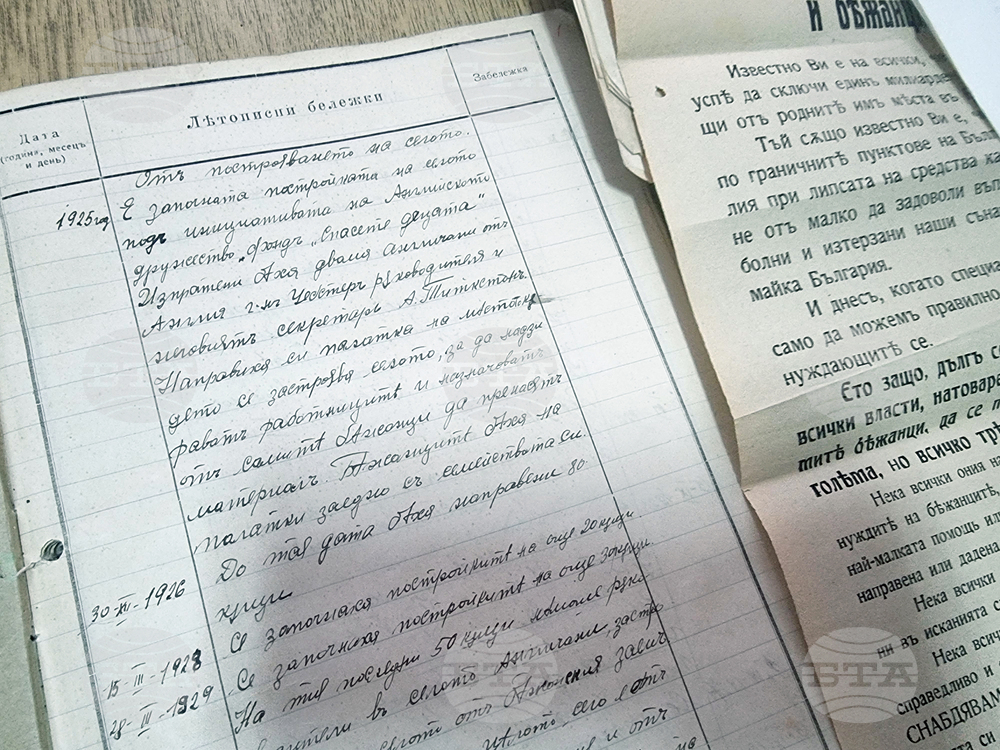 Дата
(година, месецъ
и день)
Лѣтописни бележки
Забележка
Отъ построяването на селото.
1925 год
Е започната постройката на селото
подъ инициативата на Английското
дружество, фондъ „Спасете децата“
Изпратени бѫха двама англичани отъ
Англия г-нъ Честеръ рѫководителя и
неговиятъ секретарь А. Титкетонъ.
Направиха си палатка на мѣстото
дето се застроява селото, за да надзи
раватъ работницитѣ и назначаватъ
отъ самитѣ бѫжанци да пренасятъ
материалъ. Бѫжанцитѣ бѫха на
палатки заедно съ семействата си.
До тая дата бѫха направени 80
кѫщи
30-XII-1926
Се започнаха постройкитѣ на още 20 кѫщи
15-III-1928
Се започнаха постройкитѣ на още 30 кѫщи.
28-III-1929
На тия последни 50 кѫщи нѣмаше рѫко-
водители въ селото Англичани, застро
селото отъ
селото отъ
и отъ
на
и бѣжанц
Известно Ви е на всички,
успѣ да сключи единъ милиарде
щи отъ роднитѣ имъ мѣста въ
Тъй сѫщо известно Ви е,
по граничнитѣ пунктове на Бълг
лия при липсата на средства ка
не отъ малко да задоволи въп
болни и изтерзани наши съна
майка България.
И днесъ, когато специа
само да можемъ правилно
нуждающитѣ се.
Ето защо, дългъ се
всички власти, натоваре
митѣ бѣжанци, да се п
голѣма, но всичко трѣ
Нека всички ония на
нуждитѣ на бѣжанцитѣ,
най-малката помощь или
направена или дадена
Нека всички
ни въ исканията с
Нека всичк
справедливо и
СНАБДЯВАМ
ка си
БТА